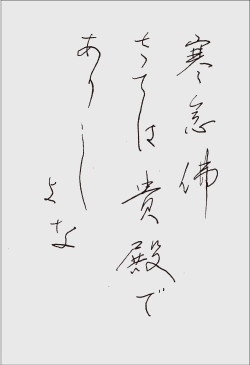 寒念佛
さては貴殿で
ありし
よな